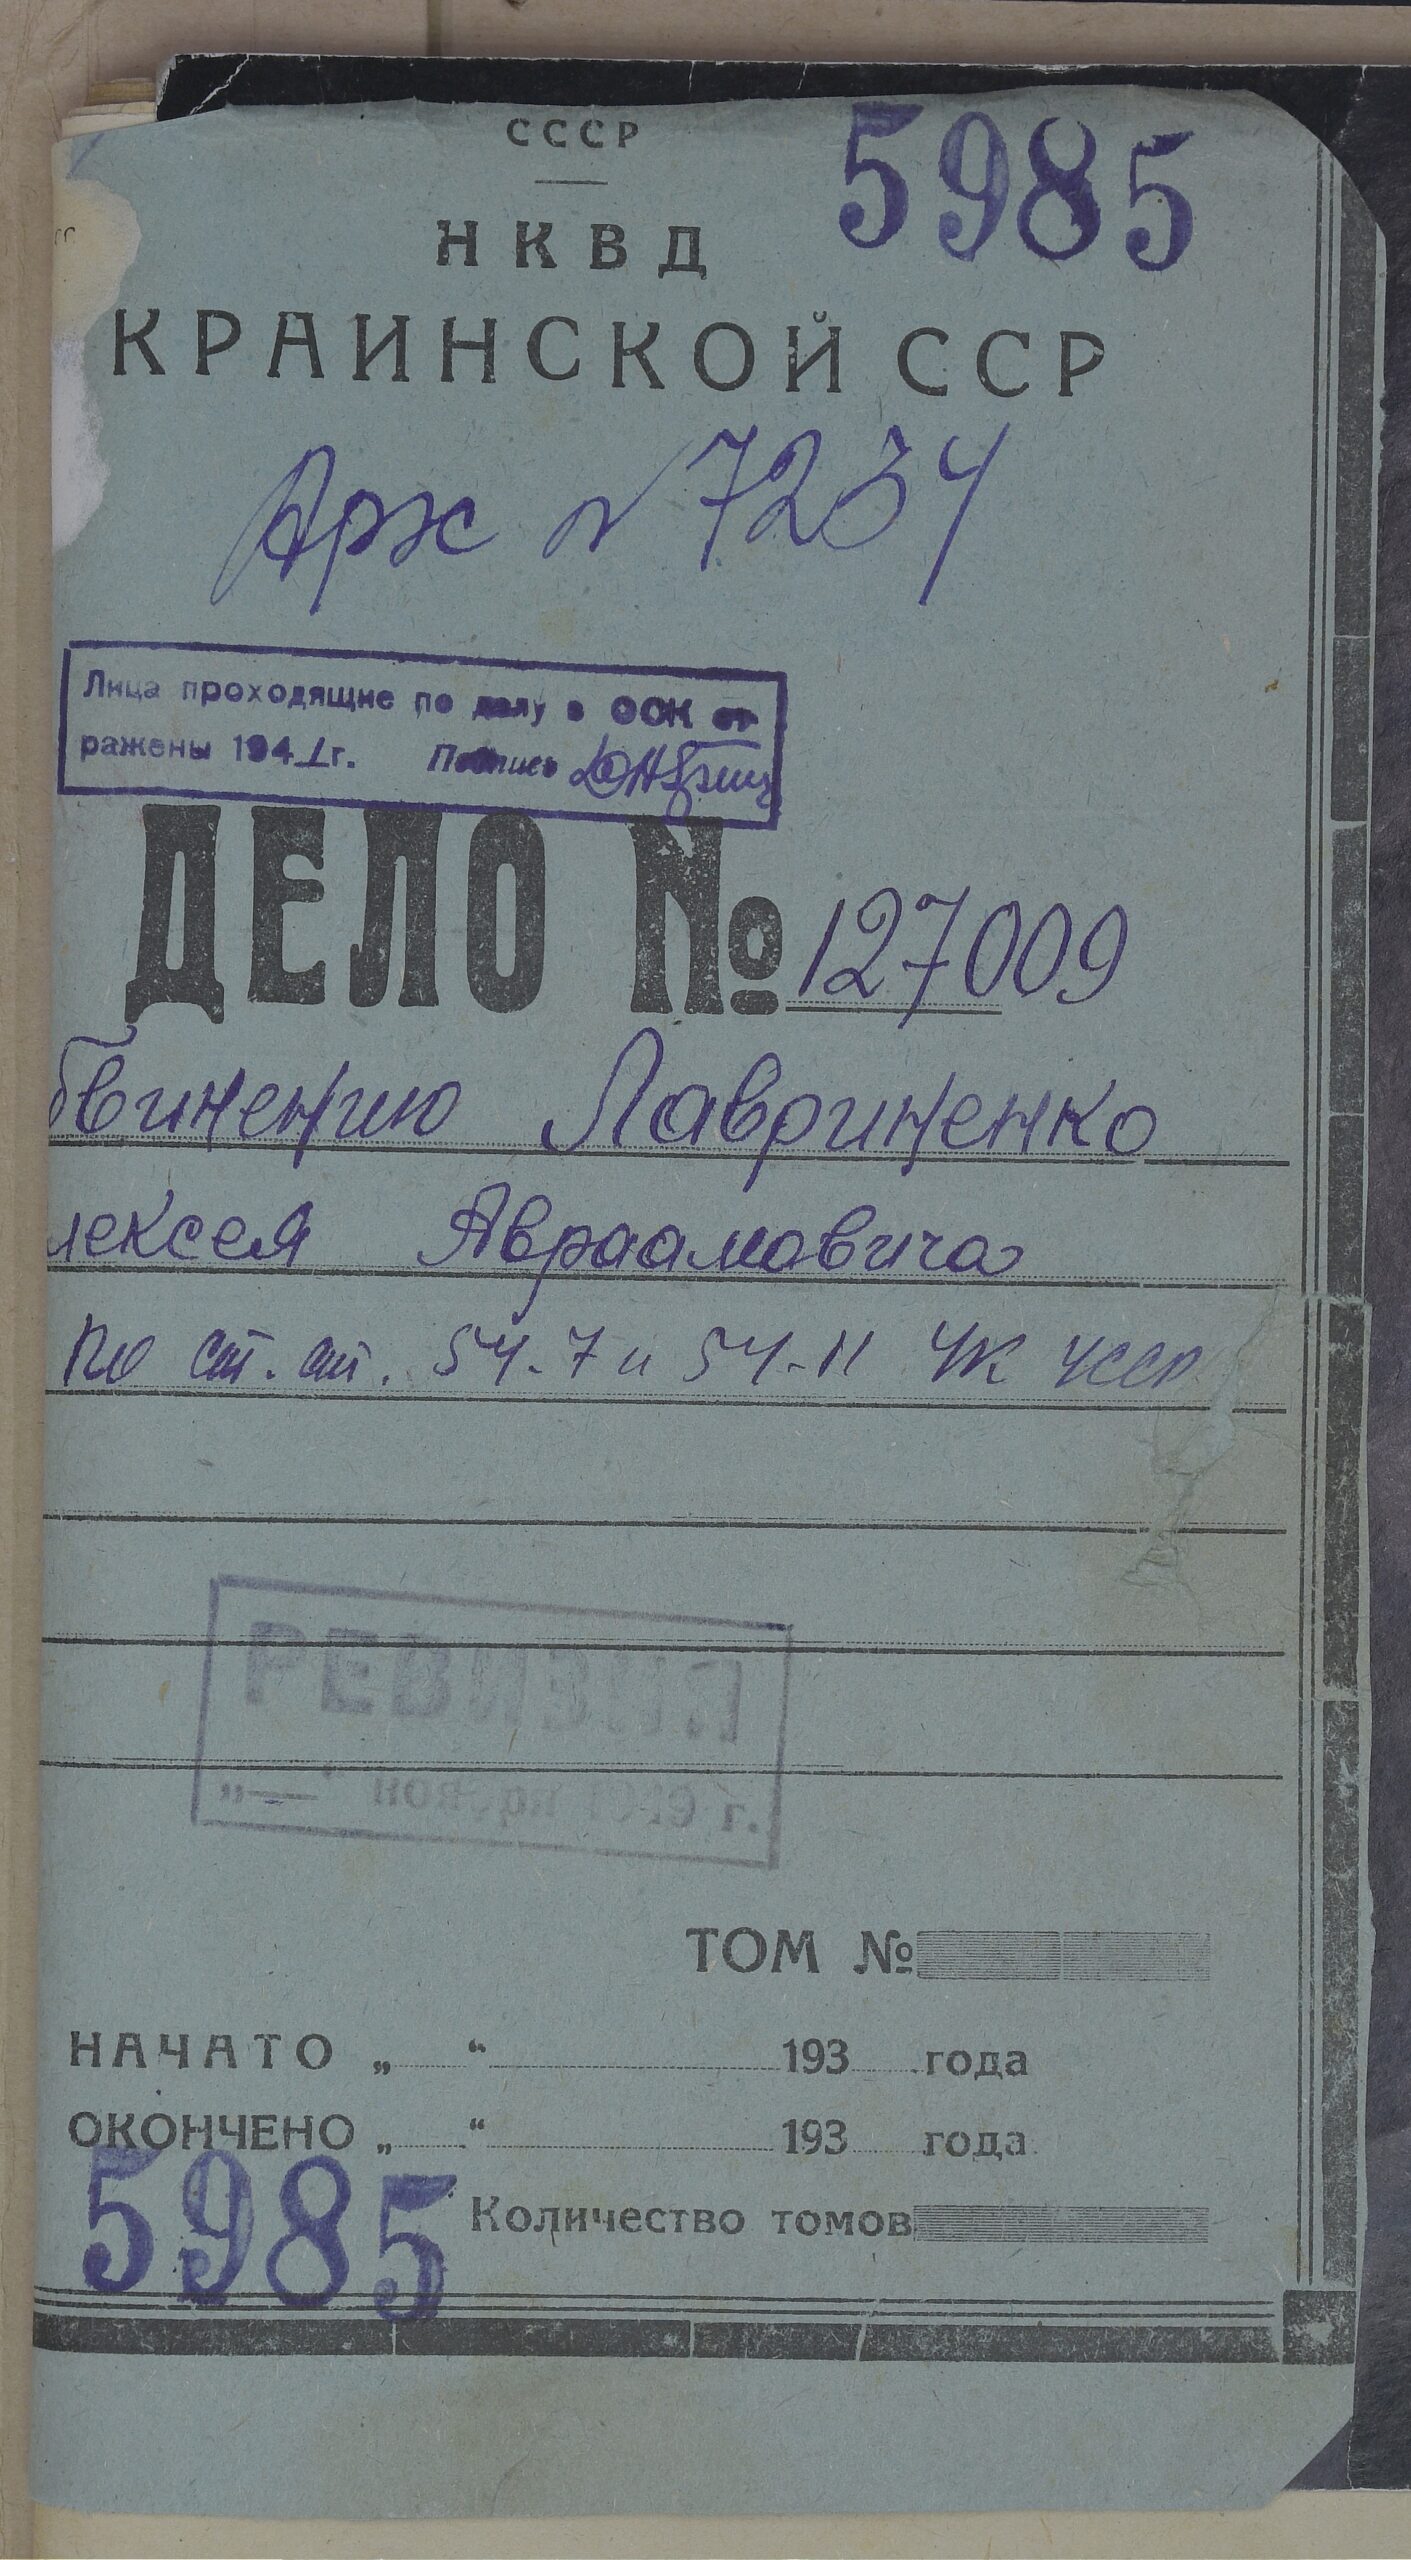 СССР
5985
НКВД
КРАИНСКОЙ ССР
Арх N 7234
Лица проходящие по делу в ООК от
ражены 1941 г. Подпись
ДЕЛО № 127009
бвинению Лавриненко
лексея Авраамовича
по ст. ст. 54-7 и 54-11 УК УССР
РЕВИЗИЯ
ТОМ №
НАЧАТО „ “ 193 года
ОКОНЧЕНО „ “ 193 года
5985
Количество томов